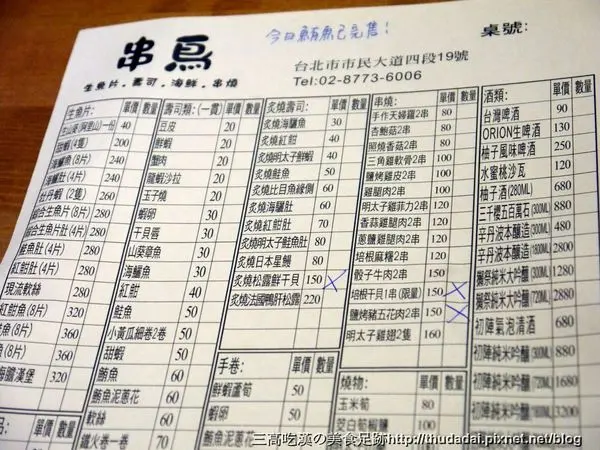 今日鮪魚已完售!
桌號:
串鳥
生魚片.壽司.海鮮.串燒
台北市市民大道四段19號
Tel:02-8773-6006
生魚片: 單價 數量
生山葵(阿里山)一份 40
甜蝦(4隻) 200
海鱺魚(8片) 240
海鱺肚(4片) 240
牡丹蝦(2隻) 260
綜合生魚片(8片) 280
綜合生魚片肚(4片) 280
鮭魚肚(4片) 280
紅魽肚(4片) 280
現流軟絲 280
紅魽(8片) 320
(8片) 360
(8片) 360
海膽漢堡 320
單價 數量
壽司類:(一貫) 單價 數量
豆皮 20
鮮蝦 20
蟹肉 20
龍蝦沙拉 20
玉子燒 20
蝦卵 30
干貝唇 30
山葵章魚 30
海鱺魚 30
紅魽 40
鮭魚 50
小黃瓜細卷2卷 50
甜蝦 60
鮪魚 60
鮪魚泥蔥花 60
軟絲 60
鐵火卷一卷 70
炙燒壽司: 單價 數量
炙燒海鱺魚 30
炙燒紅魽 40
炙燒明太子鮮蝦 40
炙燒鮭魚 50
炙燒比目魚緣側 60
炙燒海鱺肚 60
炙燒紅魽肚 70
炙燒明太子鮭魚肚 80
炙燒日本星鰻 80
炙燒松露鮮干貝 150 X
炙燒法國鴨肝松露 220
手卷: 單價 數量
鮮蝦蘆筍 50
蝦卵 50
鮪魚泥蔥花
串燒: 單價 數量
手作天婦羅2串 80
杏鮑菇2串 80
照燒香菇2串 80
三角雞軟骨2串 80
鹽烤雞皮2串
雞腿肉2串
明太子雞菲力2串 120
香蒜雞腿肉2串 120
蔥鹽雞肉2串 120
培根麻糬2串 120
骰子牛肉2串 150
培根干貝1串(限量) 150 X
鹽烤豬五花肉2串 150 X
明太子雞翅2隻 160
燒物: 單價 數量
玉米筍 80
翠白筍椒鹽
酒類: 單價 數量
台灣啤酒 90
ORION生啤酒 130
柚子風味啤酒 250
水蜜桃沙瓦 120
柚子酒(280ML) 680
三千櫻五百萬石(300ML) 880
辛丹波本釀造(300ML) 550
辛丹波本釀造(720ML) 1200
獺祭純米大吟釀(300ML) 1280
獺祭純米大吟釀(720ML) 2880
初陣氣泡清酒 680
初陣純米吟釀(300ML) 880
初陣純米吟釀(720ML) 1680
初陣純米吟釀 3200
三高吃漢の美食足跡http://thudadai.pixnet.net/blog